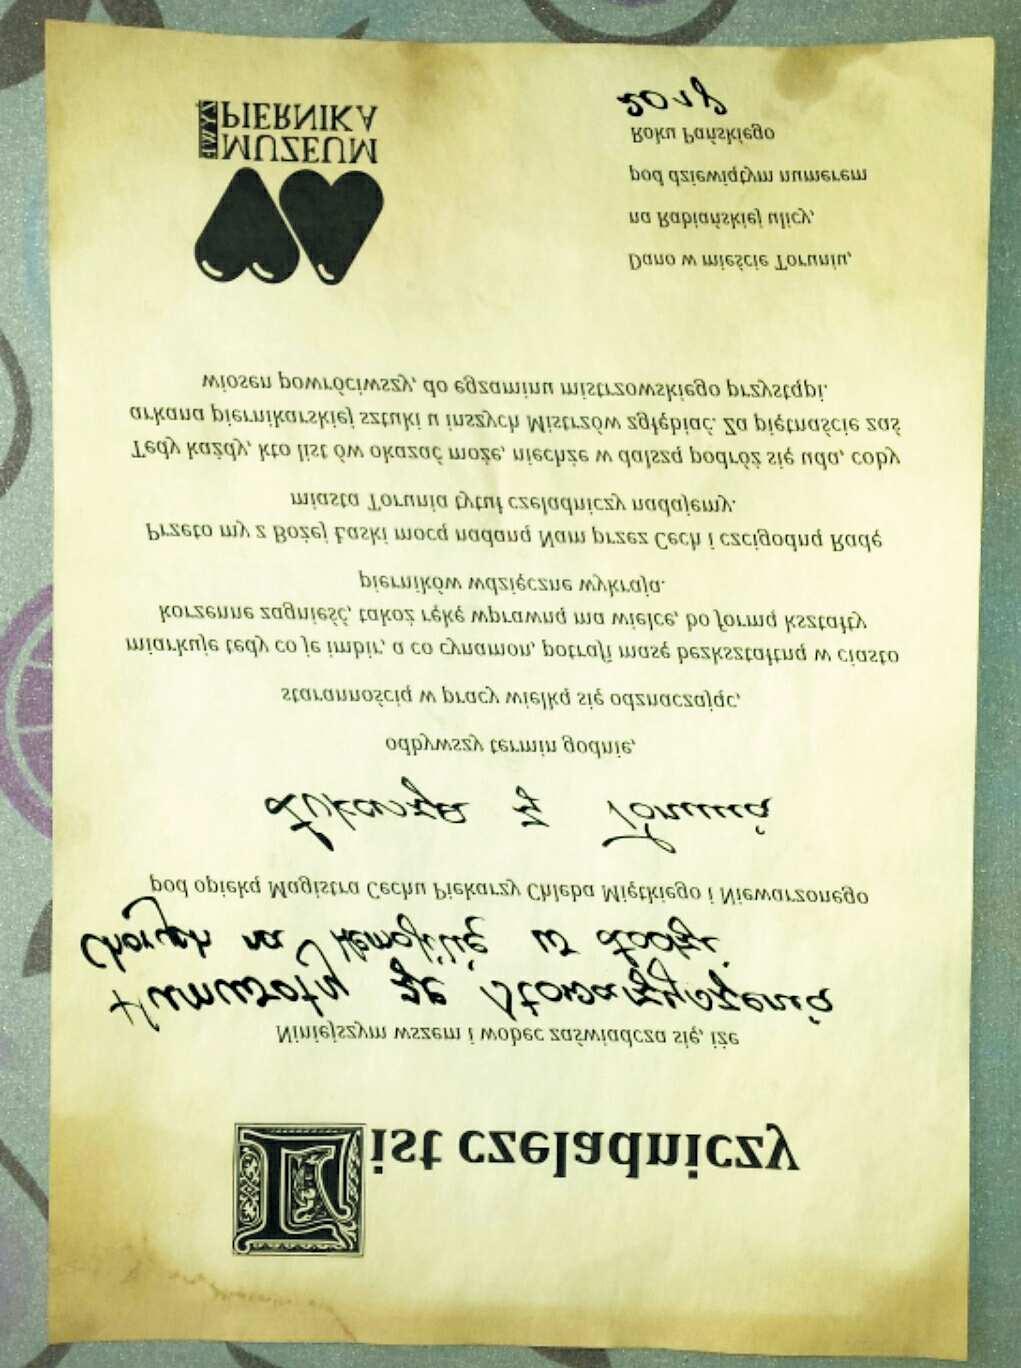 List czeladniczy
Niniejszym wszem i wobec zaświadcza się, iże
Humwroty ze Stowarzyszenia
Chorych na Hemofilię w Łodzi
pod opieką Magistra Cechu Piekarzy Chleba Miętkiego i Niewarzonego
Łukasza z Torunia
odbywszy termin godnie,
starannością w pracy wielką się odznaczając,
miarkuje tedy co je imbir, a co cynamon, potrafi masę bezkształtną w ciasto
korzenne zagnieść, takoż rękę wprawną ma wielce, bo formą kształty
pierników wdzięczne wykraja.
Przeto my z Bożej Łaski mocą nadaną Nam przez Cech i czcigodną Radę
miasta Torunia tytuł czeladniczy nadajemy.
Tedy każdy, kto list ów okazać może, niechże w dalszą podróż się uda, coby
arkana piernikarskiej sztuki u inszych Mistrzów zgłębiać. Za piętnaście zaś
wiosen powróciwszy, do egzaminu mistrzowskiego przystąpi.
Dano w mieście Toruniu,
na Rabiańskiej ulicy,
pod dziewiątym numerem
Roku Pańskiego
2018
MUZEUM
PIERNIKA